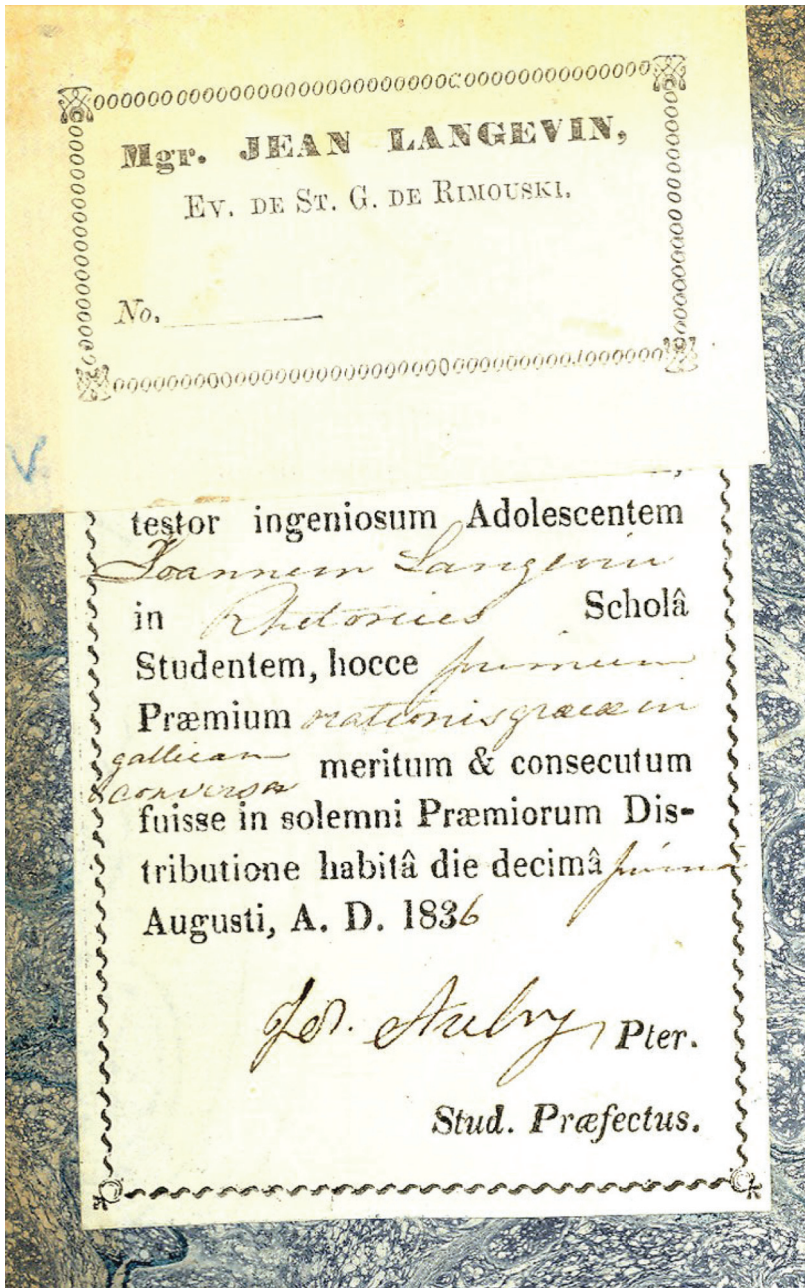 Mgr. JEAN LANGEVIN,
EV. DE ST. G. DE RIMOUSKI.
No.
V
testor ingeniosum Adolescentem
Joannem Langevin
in Rhetorices Scholâ
Studentem, hocce primum
Præmium orationis græcæ in
gallicam
conversæ meritum & consecutum
fuisse in solemni Præmiorum Dis-
tributione habitâ die decimâ primâ
Augusti, A. D. 1836
Aubry Pter.
Stud. Præfectus.